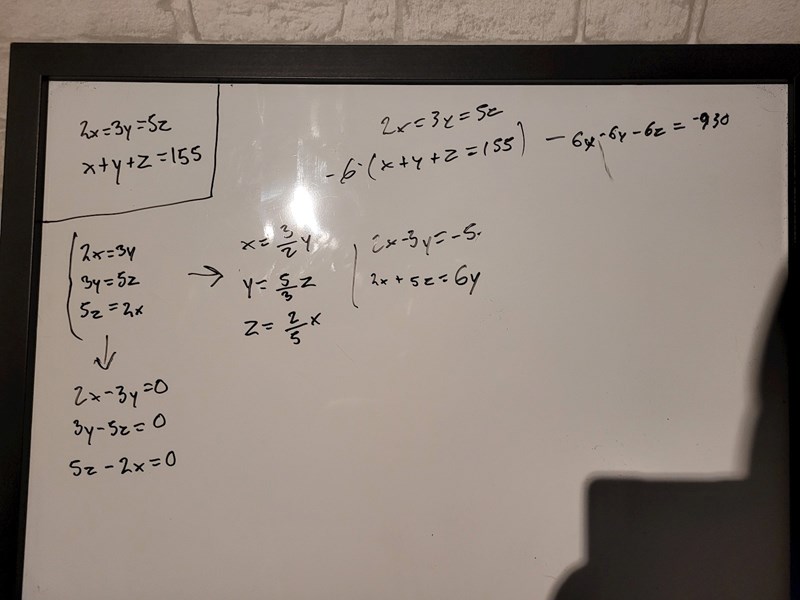 2x=3y=5z
x+y+z=155
2x=3y=5z
-6·(x+y+z=155) -6x-6y-6z=-930
2x=3y
3y=5z
5z=2x
→
x=3/2y
y=5/3z
z=2/5x
2x-3y=-5
2x+5z=6y
↓
2x-3y=0
3y-5z=0
5z-2x=0